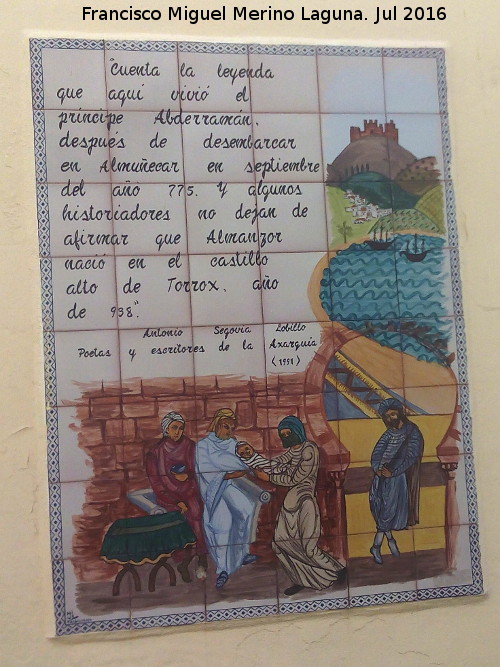 Francisco Miguel Merino Laguna. Jul 2016
"Cuenta la leyenda
que aquí vivió el
príncipe Abderraman,
después de desembarcar
en Almuñecar en septiembre
del año 775. Y algunos
historiadores no dejan de
afirmar que Almanzor
nació en el castillo
alto de Torrox, año
de 938".
Antonio Segovia Lobillo
Poetas y escritores de la Axarquía
(1991)